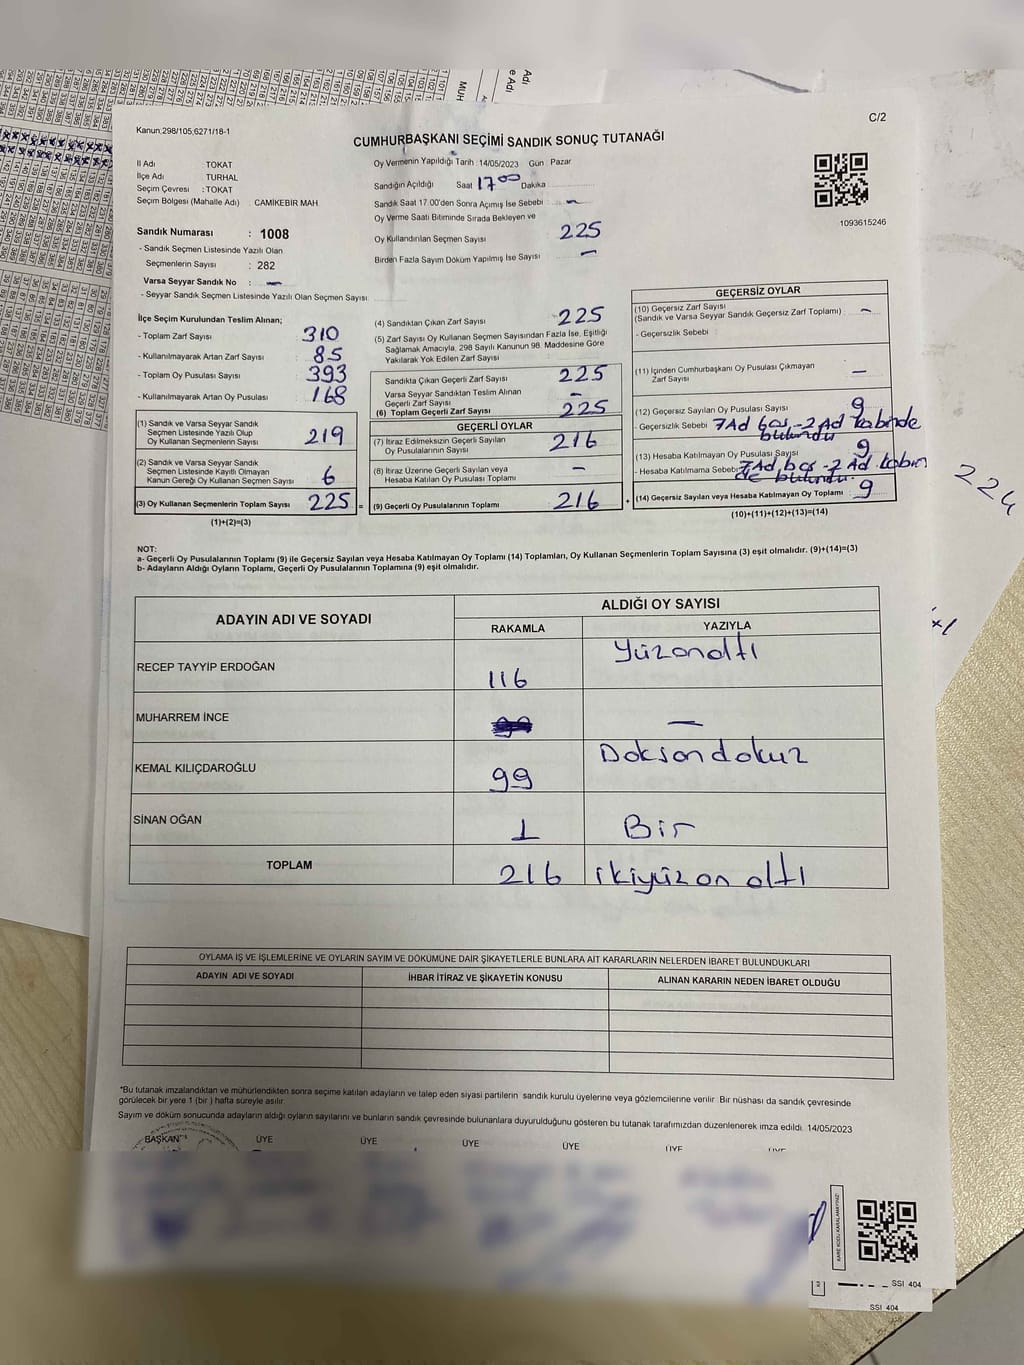 C/2
Kanun:298/105,6271/18-1
CUMHURBAŞKANI SEÇİMİ SANDIK SONUÇ TUTANAĞI
İl Adı TOKAT
İlçe Adı TURHAL
Seçim Çevresi : TOKAT
Seçim Bölgesi (Mahalle Adı) : CAMİKEBİR MAH
Sandık Numarası : 1008
- Sandık Seçmen Listesinde Yazılı Olan
Seçmenlerin Sayısı : 282
Varsa Seyyar Sandık No : -
- Seyyar Sandık Seçmen Listesinde Yazılı Olan Seçmen Sayısı:
Oy Vermenin Yapıldığı Tarih : 14/05/2023 Gün : Pazar
Sandığın Açıldığı Saat 17 00 Dakika
Sandık Saat 17.00'den Sonra Açımış İse Sebebi : -
Oy Verme Saati Bitiminde Sırada Bekleyen ve
Oy Kullandırılan Seçmen Sayısı : 225
Birden Fazla Sayım Döküm Yapılmış İse Sayısı : -
1093615246
İlçe Seçim Kurulundan Teslim Alınan;
- Toplam Zarf Sayısı : 310
- Kullanılmayarak Artan Zarf Sayısı : 85
- Toplam Oy Pusulası Sayısı : 393
- Kullanılmayarak Artan Oy Pusulası : 168
(1) Sandık ve Varsa Seyyar Sandık
Seçmen Listesinde Yazılı Olup
Oy Kullanan Seçmenlerin Sayısı 219
(2) Sandık ve Varsa Seyyar Sandık
Seçmen Listesinde Kayıtlı Olmayan
Kanun Gereği Oy Kullanan Seçmen Sayısı 6
(3) Oy Kullanan Seçmenlerin Toplam Sayısı 225 =
(1)+(2)=(3)
(4) Sandıktan Çıkan Zarf Sayısı : 225
(5) Zarf Sayısı Oy Kullanan Seçmen Sayısından Fazla İse, Eşitliği
Sağlamak Amacıyla, 298 Sayılı Kanunun 98. Maddesine Göre
Yakılarak Yok Edilen Zarf Sayısı
Sandıkta Çıkan Geçerli Zarf Sayısı 225
Varsa Seyyar Sandıktan Teslim Alınan
Geçerli Zarf Sayısı -
(6) Toplam Geçerli Zarf Sayısı 225
GEÇERLİ OYLAR
(7) İtiraz Edilmeksizin Geçerli Sayılan
Oy Pusulalarının Sayısı 216
(8) İtiraz Üzerine Geçerli Sayılan veya
Hesaba Katılan Oy Pusulası Toplamı -
(9) Geçerli Oy Pusulalarının Toplamı 216 +
GEÇERSİZ OYLAR
(10) Geçersiz Zarf Sayısı
(Sandık ve Varsa Seyyar Sandık Geçersiz Zarf Toplamı) : -
- Geçersizlik Sebebi :
(11) İçinden Cumhurbaşkanı Oy Pusulası Çıkmayan
Zarf Sayısı -
(12) Geçersiz Sayılan Oy Pusulası Sayısı 9
- Geçersizlik Sebebi 7 Ad boş - 2 Ad kabinde
bulundu
(13) Hesaba Katılmayan Oy Pusulası Sayısı 9
- Hesaba Katılmama Sebebi 7 Ad boş - 2 Ad kabin
de bulundu.
(14) Geçersiz Sayılan veya Hesaba Katılmayan Oy Toplamı : 9
(10)+(11)+(12)+(13)=(14)
224
NOT:
a- Geçerli Oy Pusulalarının Toplamı (9) ile Geçersiz Sayılan veya Hesaba Katılmayan Oy Toplamı (14) Toplamları, Oy Kullanan Seçmenlerin Toplam Sayısına (3) eşit olmalıdır. (9)+(14)=(3)
b- Adayların Aldığı Oyların Toplamı, Geçerli Oy Pusulalarının Toplamına (9) eşit olmalıdır.
ADAYIN ADI VE SOYADI
ALDIĞI OY SAYISI
RAKAMLA YAZIYLA
RECEP TAYYİP ERDOĞAN 116 Yüzonaltı
MUHARREM İNCE -
KEMAL KILIÇDAROĞLU 99 Doksandokuz
SİNAN OĞAN 1 Bir
TOPLAM 216 ikiyüzonaltı
OYLAMA İŞ VE İŞLEMLERİNE VE OYLARIN SAYIM VE DÖKÜMÜNE DAİR ŞİKAYETLERLE BUNLARA AİT KARARLARIN NELERDEN İBARET BULUNDUKLARI
ADAYIN ADI VE SOYADI İHBAR İTİRAZ VE ŞİKAYETİN KONUSU ALINAN KARARIN NEDEN İBARET OLDUĞU
*Bu tutanak imzalandıktan ve mühürlendikten sonra seçime katılan adayların ve talep eden siyasi partilerin sandık kurulu üyelerine veya gözlemcilerine verilir. Bir nüshası da sandık çevresinde
görülecek bir yere 1 (bir ) hafta süreyle asılır.
Sayım ve döküm sonucunda adayların aldığı oyların sayılarını ve bunların sandık çevresinde bulunanlara duyurulduğunu gösteren bu tutanak tarafımızdan düzenlenerek imza edildi. 14/05/2023
BAŞKAN ÜYE ÜYE ÜYE ÜYE ÜYE ÜYE
KARE KODU KARALAMAYINIZ!
SSI 404
SSI 404